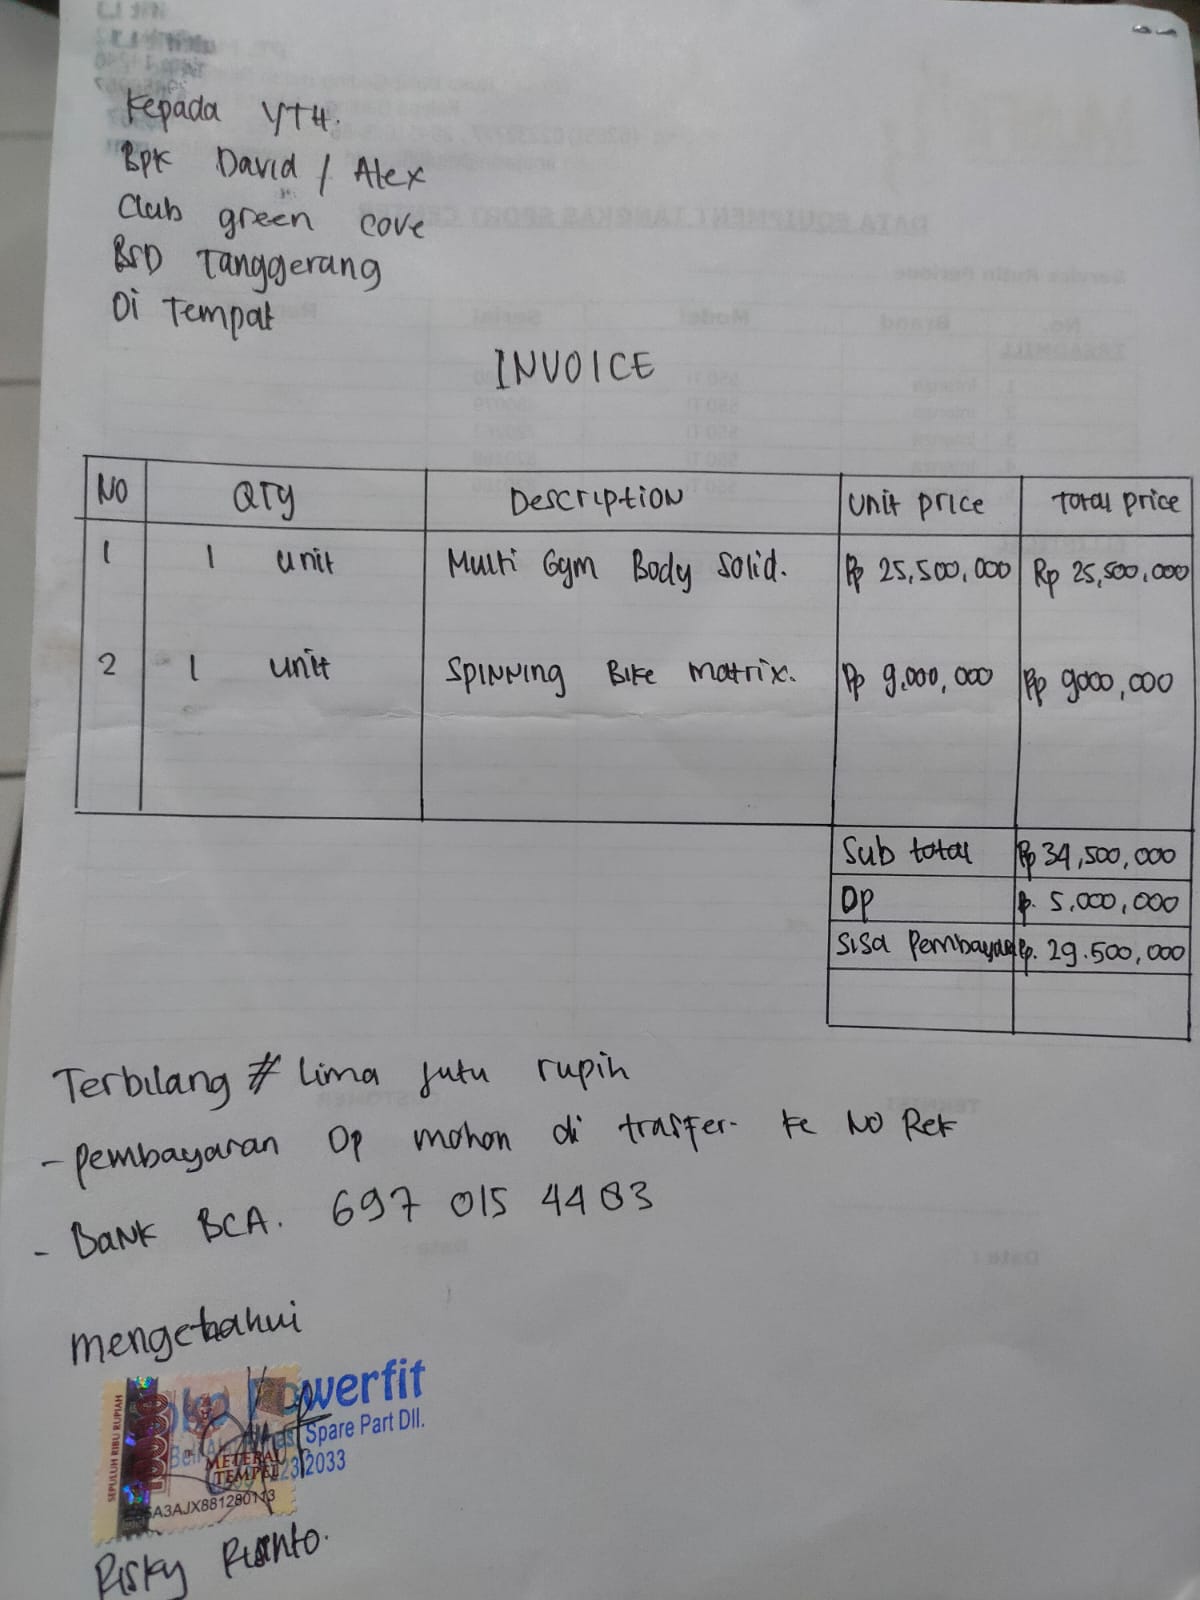 Kepada YTH.
Bpk David / Alex
Club green cove
BSD Tanggerang
Di Tempat
INVOICE
NO QTY Description Unit price Total price
1 1 unit Multi Gym Body Solid. Rp 25,500,000 Rp 25,500,000
2 1 unit Spinning Bike matrix. Rp 9,000,000 Rp 9000,000
Sub total Rp 34,500,000
DP Rp. 5,000,000
Sisa Pembayaran Rp. 29.500,000
Terbilang # Lima Jutu rupih
- pembayaran Dp mohon di trasfer- ke No Rek
- Bank BCA. 697 015 4483
mengetahui
Powerfit
Spare Part Dll.
2033
SEPULUH RIBU RUPIAH
METERAI
TEMPEL
A3AJX881280113
Risky